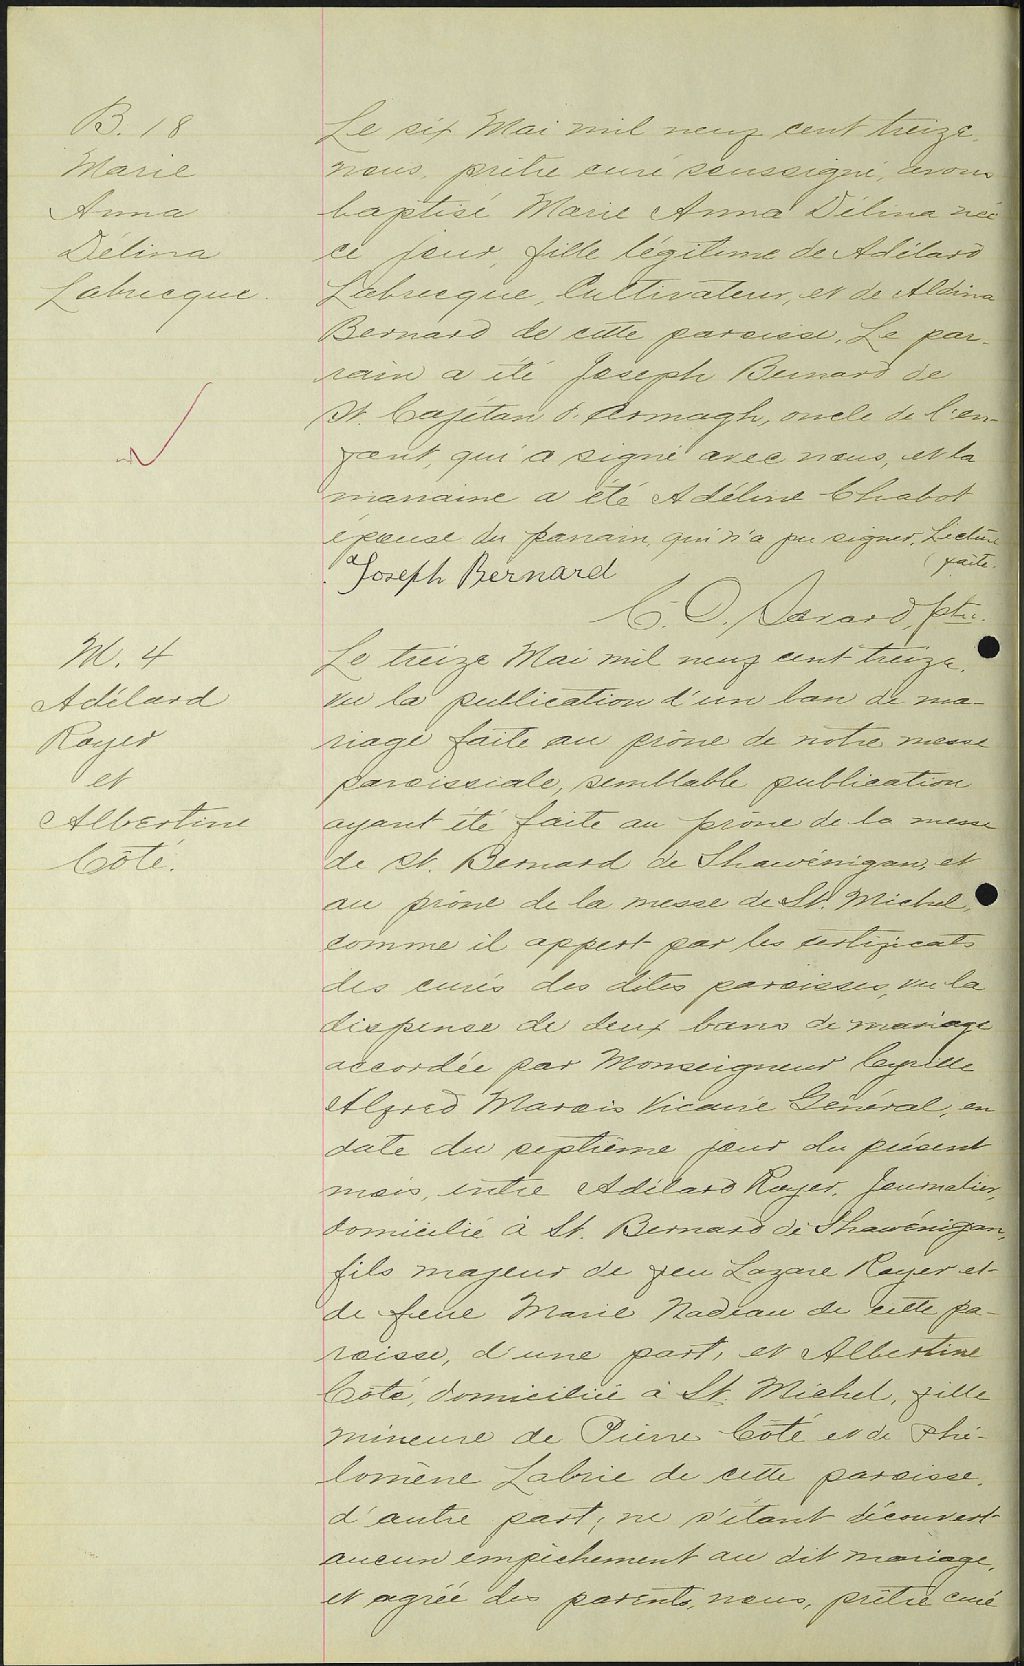 B. 18
Marie
Anna
Délina
Labrecque.
Le six Mai mil neuf cent treize,
nous, prêtre curé soussigné, avons
baptisé Marie Anna Délina née
ce jour, fille légitime de Adélard
Labrecque, Cultivateur, et de Aldina
Bernard de cette paroisse. Le par-
rain a été Joseph Bernard de
St. Cajétan d'Armagh, oncle de l'en-
fant, qui a signé avec nous, et la
marraine a été Adéline Chabot
épouse du parrain, qui n'a pu signer. Lecture
faite.
Joseph Bernard
C. O. Savard, ptre.
M. 4
Adélard
Royer
et
Albertine
Côté.
Le treize Mai mil neuf cent treize,
vu la publication d'un ban de ma-
riage faite au prône de notre messe
paroissiale, semblable publication
ayant été faite au prône de la messe
de St. Bernard de Shawénigan, et
au prône de la messe de St. Michel,
comme il appert par les certificats
des curés des dites paroisses, vu la
dispense de deux bans de mariage
accordée par Monseigneur Cyrille
Alfred Marois Vicaire Général, en
date du septième jour du présent
mois, entre Adélard Royer, Journalier,
domicilié à St. Bernard de Shawénigan,
fils majeur de feu Lazare Royer et
de feue Marie Nadeau de cette pa-
roisse, d'une part, et Albertine
Côté, domiciliée à St. Michel, fille
mineure de Pierre Côté et de Phi-
lomène Labrie de cette paroisse,
d'autre part, ne s'étant découvert
aucun empêchement au dit mariage,
et agréé des parents, nous, prêtre curé